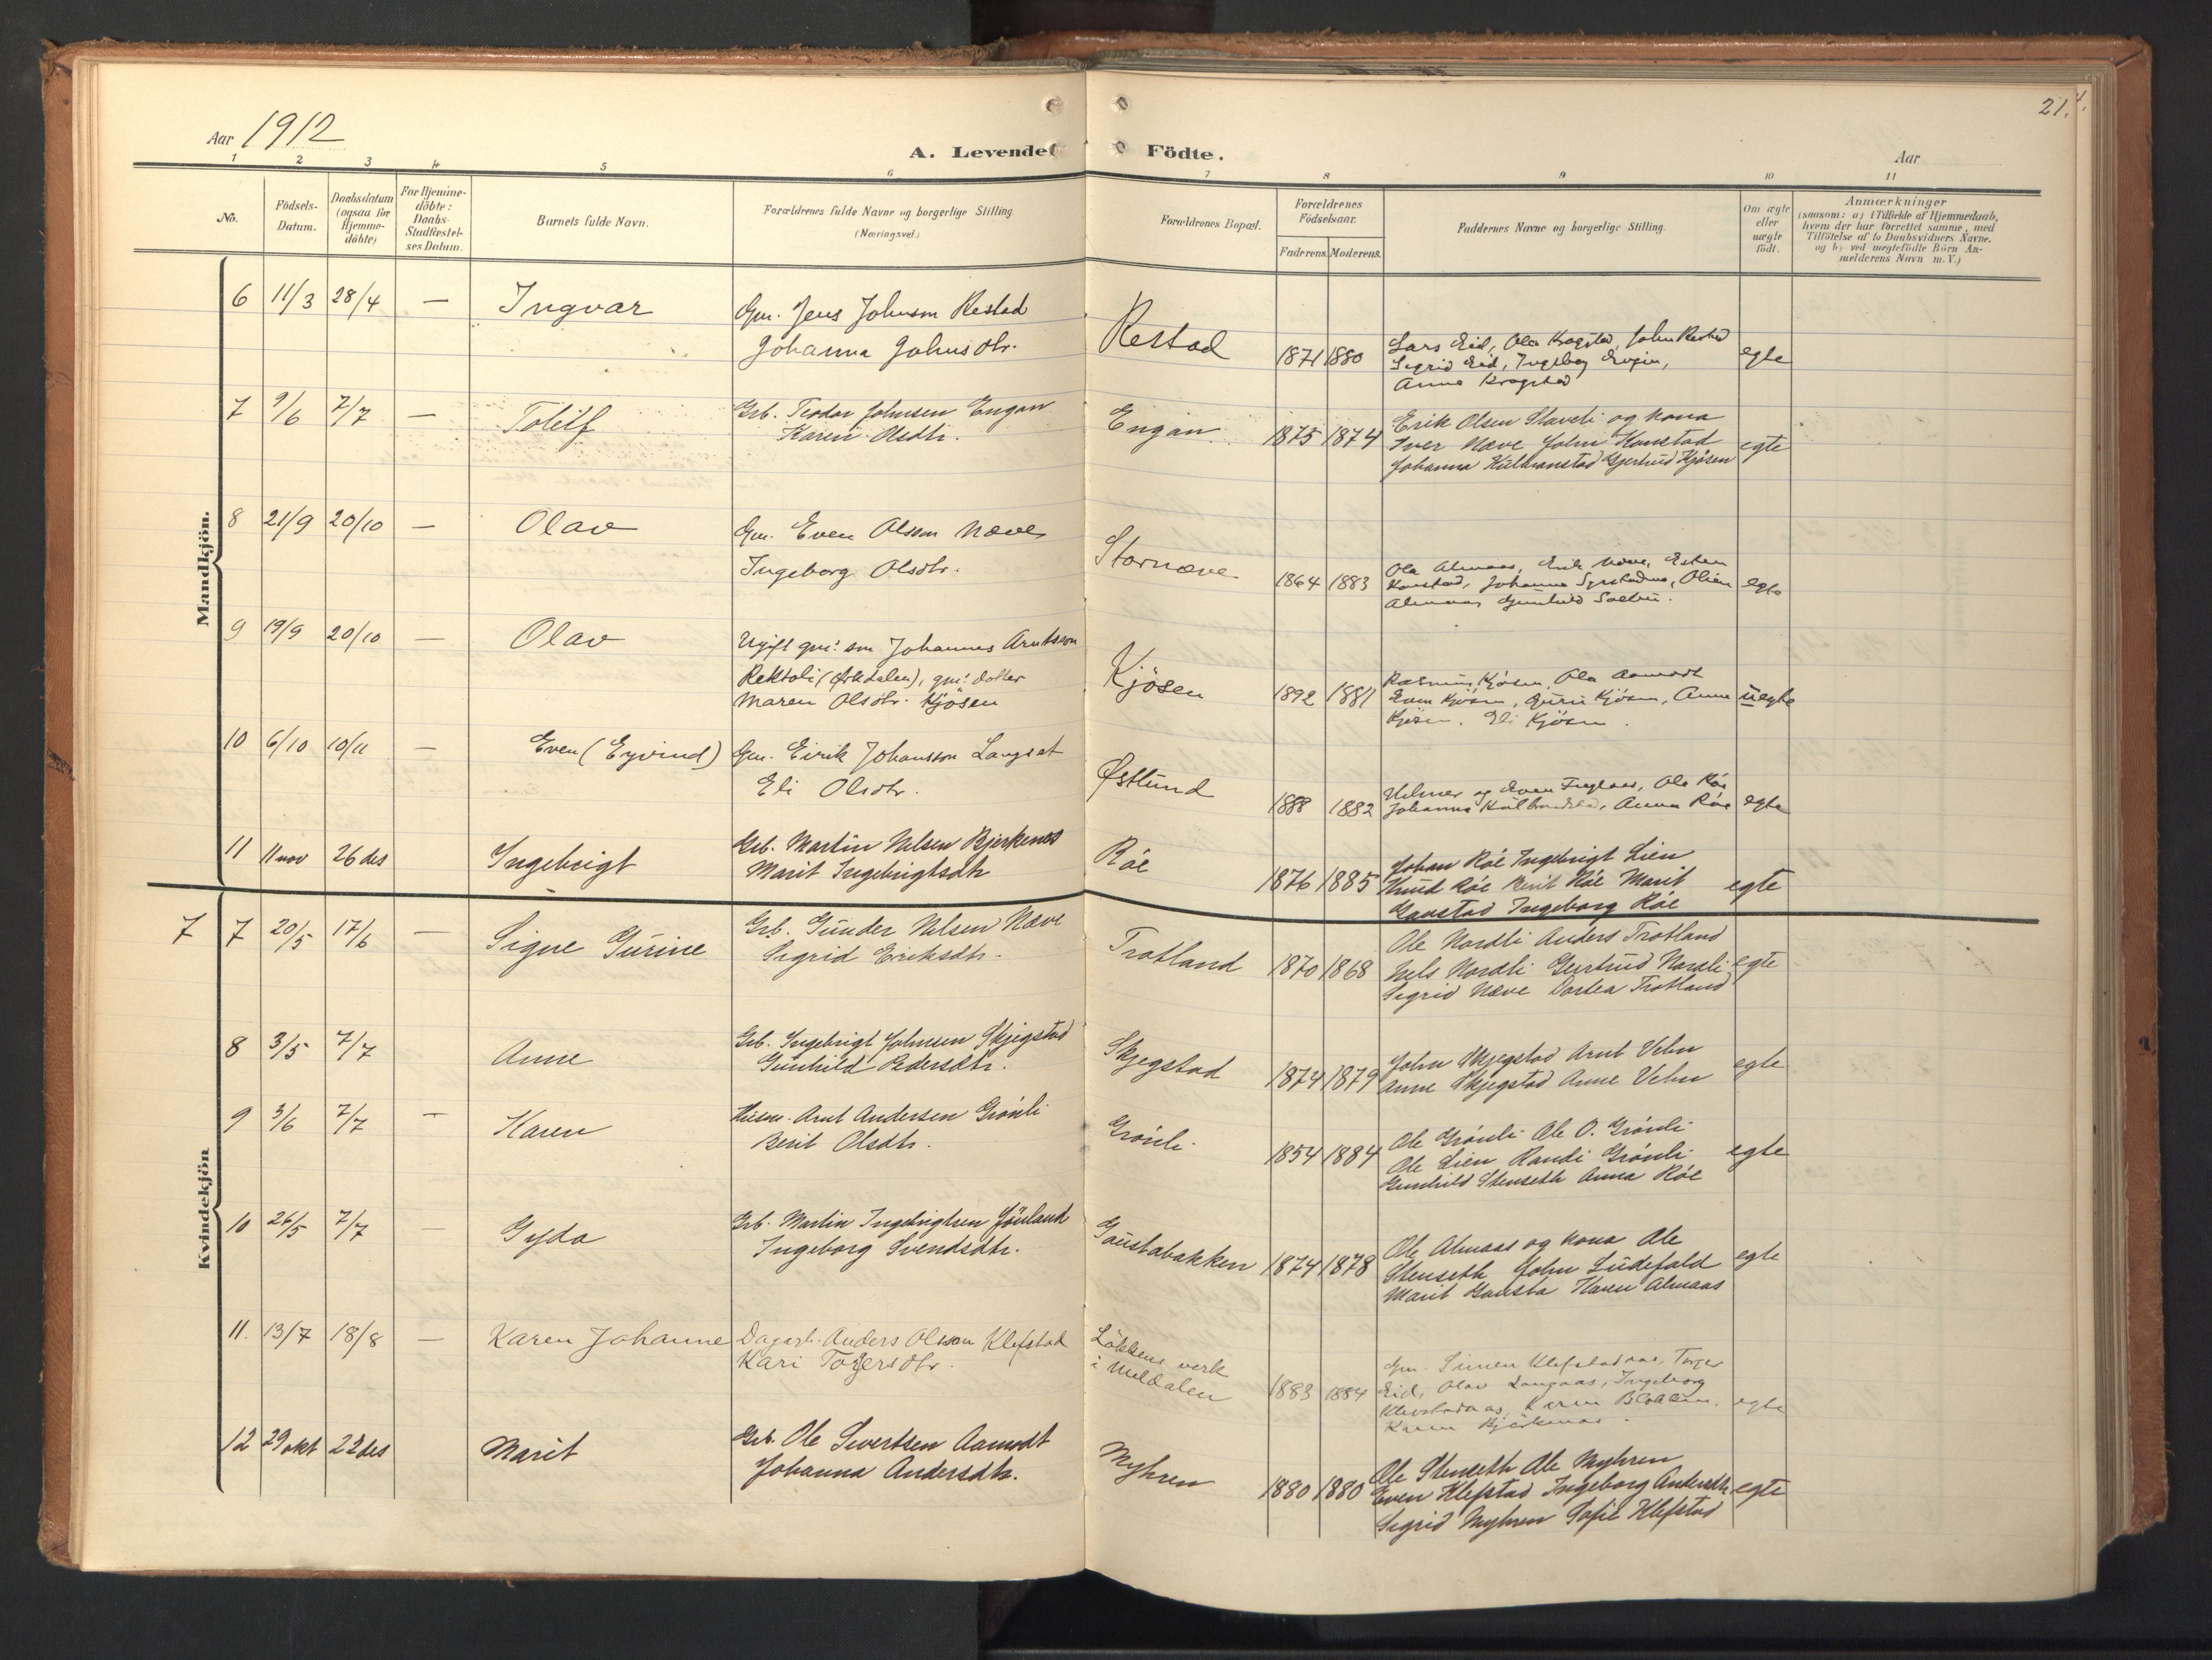 21.
Aar 1912
A. Levende
Födte.
Aar
1 2 3 4 5 6 7 8 9 10 11
No.
Födsels-
Datum.
Daabsdatum
(ogsaa for
Hjemme-
døbte)
For Hjemme-
döbte:
Daabs-
Stadfæstel-
ses Datum.
Barnets fulde Navn.
Forældrenes fulde Navne og borgerlige Stilling.
(Næringsvei.)
Forældrenes Bopæl.
Forældrenes
Födselsaar.
Faderens. Moderens.
Faddernes Navne og borgerlige Stilling.
Om ægte
eller
uægte
födt.
Anmærkninger
(saasom: a) i Tilfælde af Hjemmedaab,
hvem der har forrettet samme, med
Tilföielse af to Daabsvidners Navne.
og b) ved uægtefödte Börn An-
melderens Navn m. V.)
Mandkjön.
6 11/3 28/4 — Ingvar
Gm. Jens Johnson Restad
Johanna Johnsdtr.
Restad 1871 1880
Lars Eid, Ola Kragstad, John Restad
Sigrid Eid, Ingeborg
Anna Kragstad
egte
7 9/6 7/7 — Tolleif
Grb. Teodor Johnsen Engan
Karen Olsdtr.
Engan 1875 1874
Erik Olsen Slaveli og kona
Iver Næve John Konstad
Johanna Kulbranstad Gjertrud Kjösen
egte
8 21/9 20/10 — Olav
Gm. Even Olsson Næve
Ingeborg Olsdtr.
Stornæve 1864 1883
Ola Almaas, Erik Næve, Esten
Konstad, Johanna Syrstadmo, Oline
Almaas Gunhild Sæther.
egte
9 19/9 20/10 — Olav
Ugift gm: søn Johannes Arntsson
Rektoli (Orkdalen), gm: dotter
Maren Olsdtr. Kjösen
Kjösen 1892 1881
Rasmus Kjösen, Ola Aamodt
Even Kjösen, Guru Kjösen, Anne
Kjösen, Eli Kjösen.
uegte
10 6/10 10/11 — Even (Eyvind)
Gm. Eirik Johansson Langset
Eli Olsdtr.
Østlund 1888 1882
Hilmer og Even Fuglaas, Ola Röe
Johanna Kulbrandstad, Anna Röe
egte
11 11 nov 26 des Ingebrigt
Grb. Martin Nilsen Bjerkenes
Marit Ingebrigtsdtr
Röe 1876 1885
Johan Röe Ingebrigt Lien
Knud Röe Berit Röe Marit
Gaustad Ingeborg Röe
egte
Kvindekjön
7 7 20/5 17/6 — Signe Gurine
Grb. Gunder Nilsen Næve
Sigrid Eriksdtr.
Trotland 1870 1868
Ole Nordli Anders Trotland
Nils Nordli Gjertrud Nordli
Sigrid Næve Dortea Trotland
egte
8 3/5 7/7 Anne
Grb. Ingebrigt Johnsen Skjegstad
Gunhild Pedersdtr.
Skjegstad 1874 1879
John Skjegstad Arnt Vehn
Anne Skjegstad Anne Vehn
egte
9 3/6 7/7 — Karen
Husm. Arnt Andersen Grönli
Berit Olsdtr.
Grönli 1854 1884
Ole Grönli Ole O. Grönli
Ole Lien Randi Grönli
Gunhild Stenseth Anna Röe
egte
10 26/5 7/7 — Gyda
Grb. Martin Ingebrigtsen Jöuland
Ingeborg Svendsdtr.
Goustabakken 1874 1878
Ole Almaas og kona Ole
Stenseth John Ludefald
Marit Gousta Karen Almaas
egte
11. 13/7 18/8 — Karen Johanne
Dagarb. Anders Olsson Klefstad
Kari Torgersdtr.
Lökkens verk
i Meldalen
1883 1884
Gm. Simen Klefstadaas, Torger
Eid, Olav Langaas, Ingeborg
Klevstadaas, Karen Blokkum,
Karen Bjerkenaas.
egte
12 29 okt 22 des Marit
Grb. Ole Sivertsen Aamodt
Johanna Andersdtr.
Myhren 1880 1880
Ole Stenseth Ole Myhren
Even Klefstad Ingeborg Andersdtr.
Sigrid Myhren Sofie Klefstad
egte